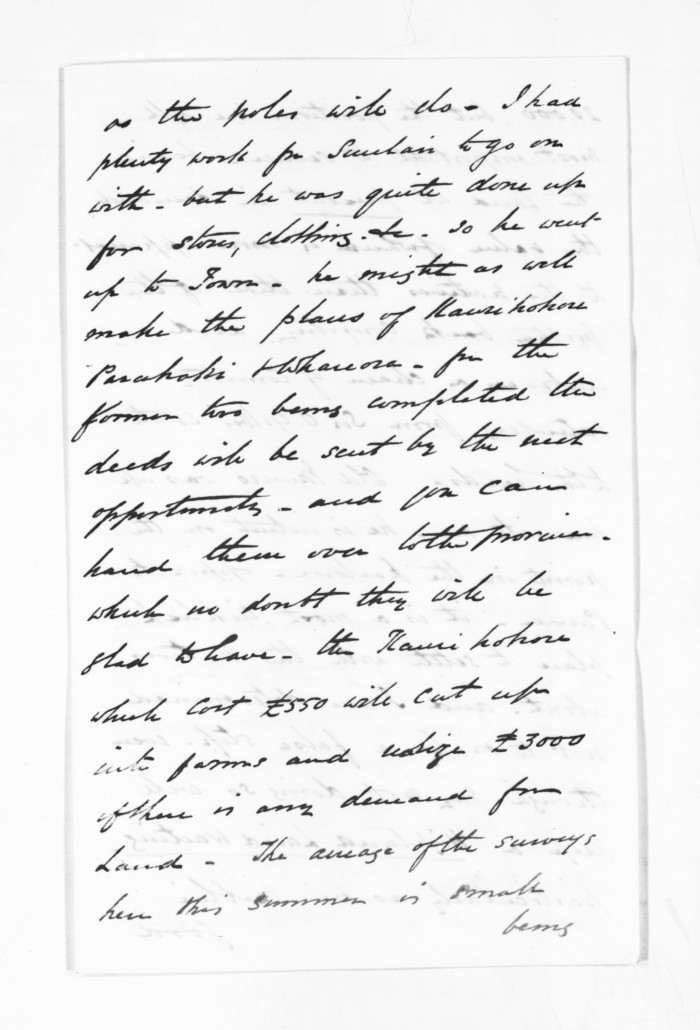 as the poles will do - I had
plenty work for Sinclair to go on
with - but he was quite done up
for stores, clothing - &c - so he went
up to Town - he might as well
make the plans of Kaurikohore
Parahaki & Whareora - for the
former two being completed the
deeds will be sent by the next
opportunity - and you can
hand them over to the Province -
which no doubt they will be
glad to have - the Kauri kohore
which cost £550 will cut up
into farms and realize £3000
if there is any demand for
Land - The acreage of the surveys
here this summer is small
being